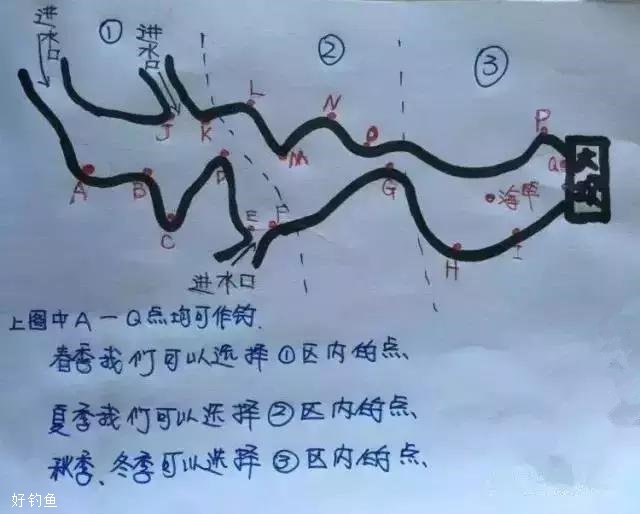 进水口
①
进水口
②
③
L
N
P
J
K
O
M
Q
大坝
A
B
D
G
海竿
C
E
F
H
I
进水口
上图中A一Q点均可作钓.
春季我们可以选择①区内的点、
夏季我们可以选择②区内的点、
秋季、冬季可以选择③区内的点、
好钓鱼